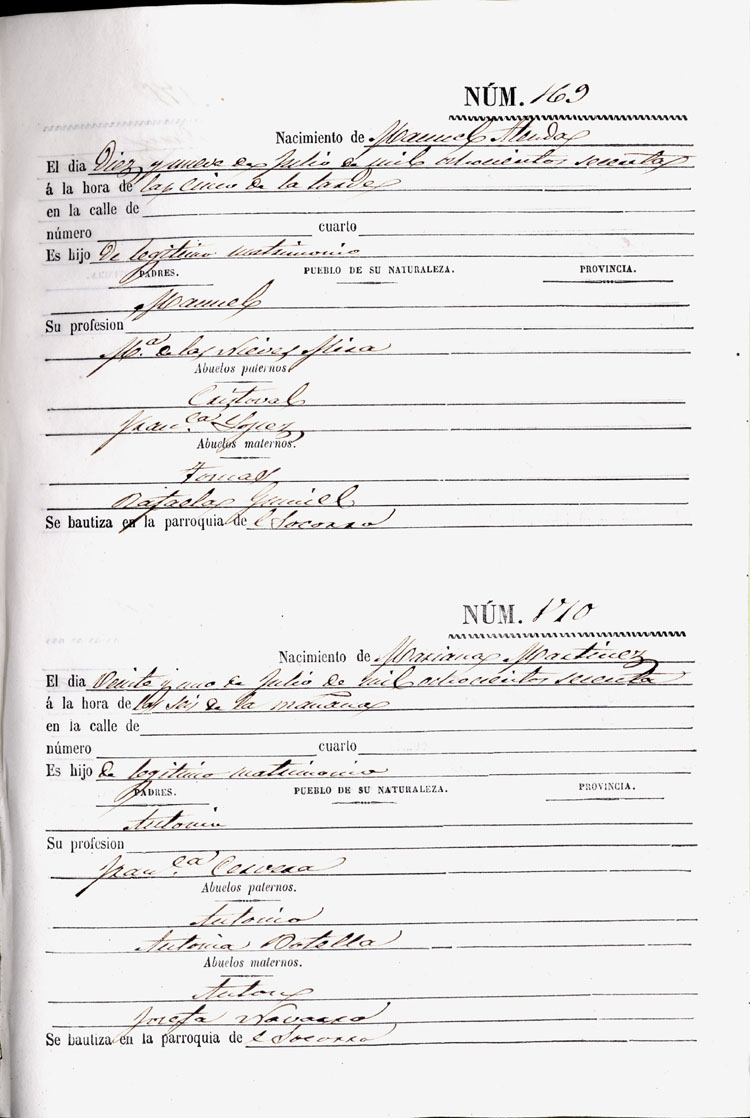 NÚM. 169
Nacimiento de Manuel Alenda
El dia Diez y nueve de Julio de mil ochocientos sesenta
á la hora de las Cinco de la tarde
en la calle de
número cuarto
Es hijo de legitimo matrimonio
PADRES. PUEBLO DE SU NATURALEZA. PROVINCIA.
Manuel
Su profesion
M.ª de las Nieves Mira
Abuelos paternos.
Cristoval
Fran.ca Lopez
Abuelos maternos.
Tomas
Rafaela
Se bautiza en la parroquia de el Socorro
NÚM. 170
Nacimiento de Mariana Martinez
El dia Veinte y uno de Julio de mil ochocientos sesenta
á la hora de las seis de la mañana
en la calle de
número cuarto
Es hijo de legitimo matrimonio
PADRES. PUEBLO DE SU NATURALEZA. PROVINCIA.
Antonio
Su profesion
Fran.ca Cervera
Abuelos paternos.
Antonio
Antonia Botella
Abuelos maternos.
Anton
Josefa Navarro
Se bautiza en la parroquia de el Socorro